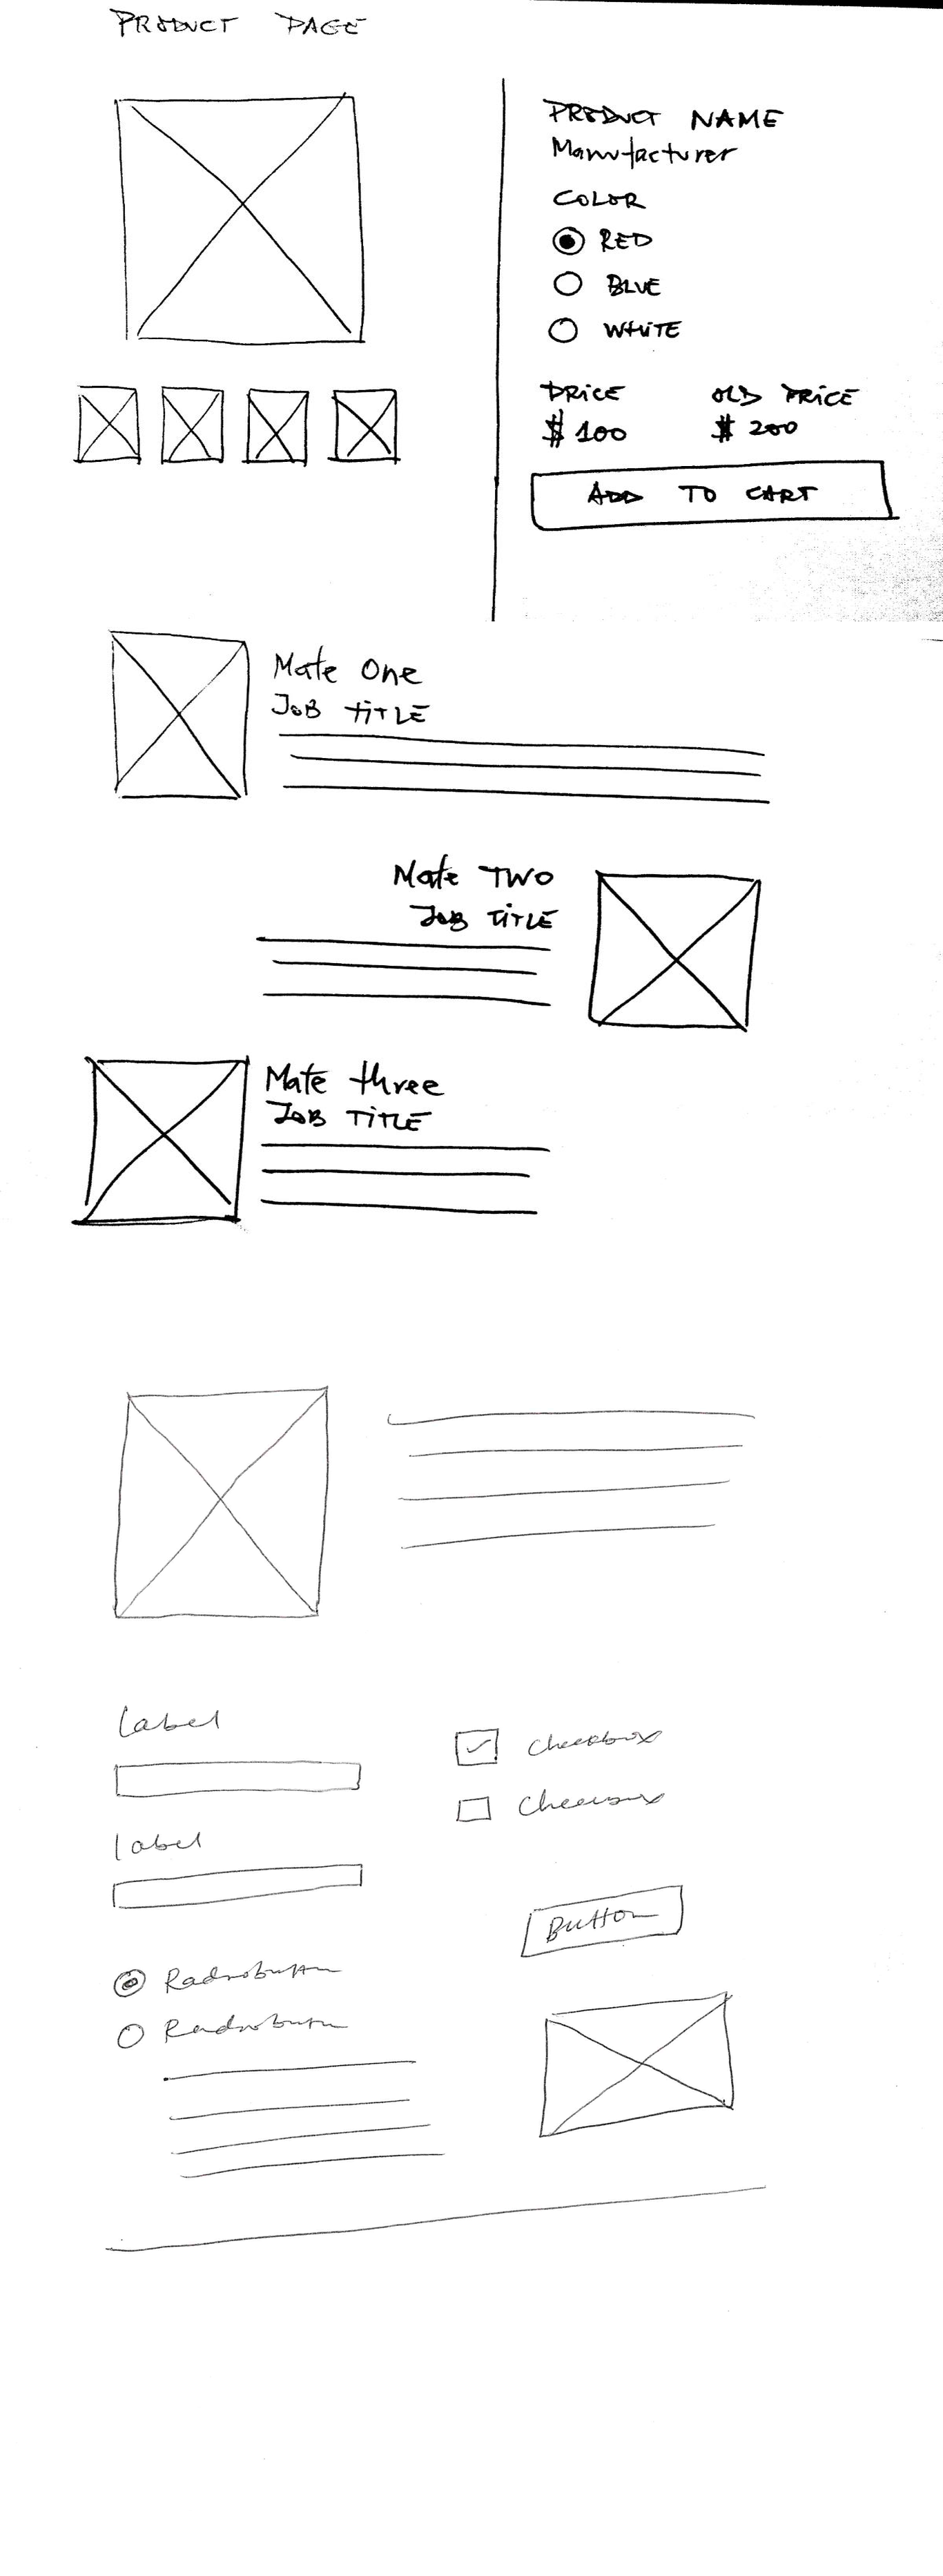 PRODUCT PAGE
PRODUCT NAME
Manufacturer
COLOR
RED
BLUE
WHITE
PRICE OLD PRICE
$ 100 $ 200
ADD TO CART
Mate One
JOB TITLE
Mate TWO
JOB TITLE
Mate three
JOB TITLE
Label
Checkbox
Checkbox
label
Button
Radiobutton
Radiobutton